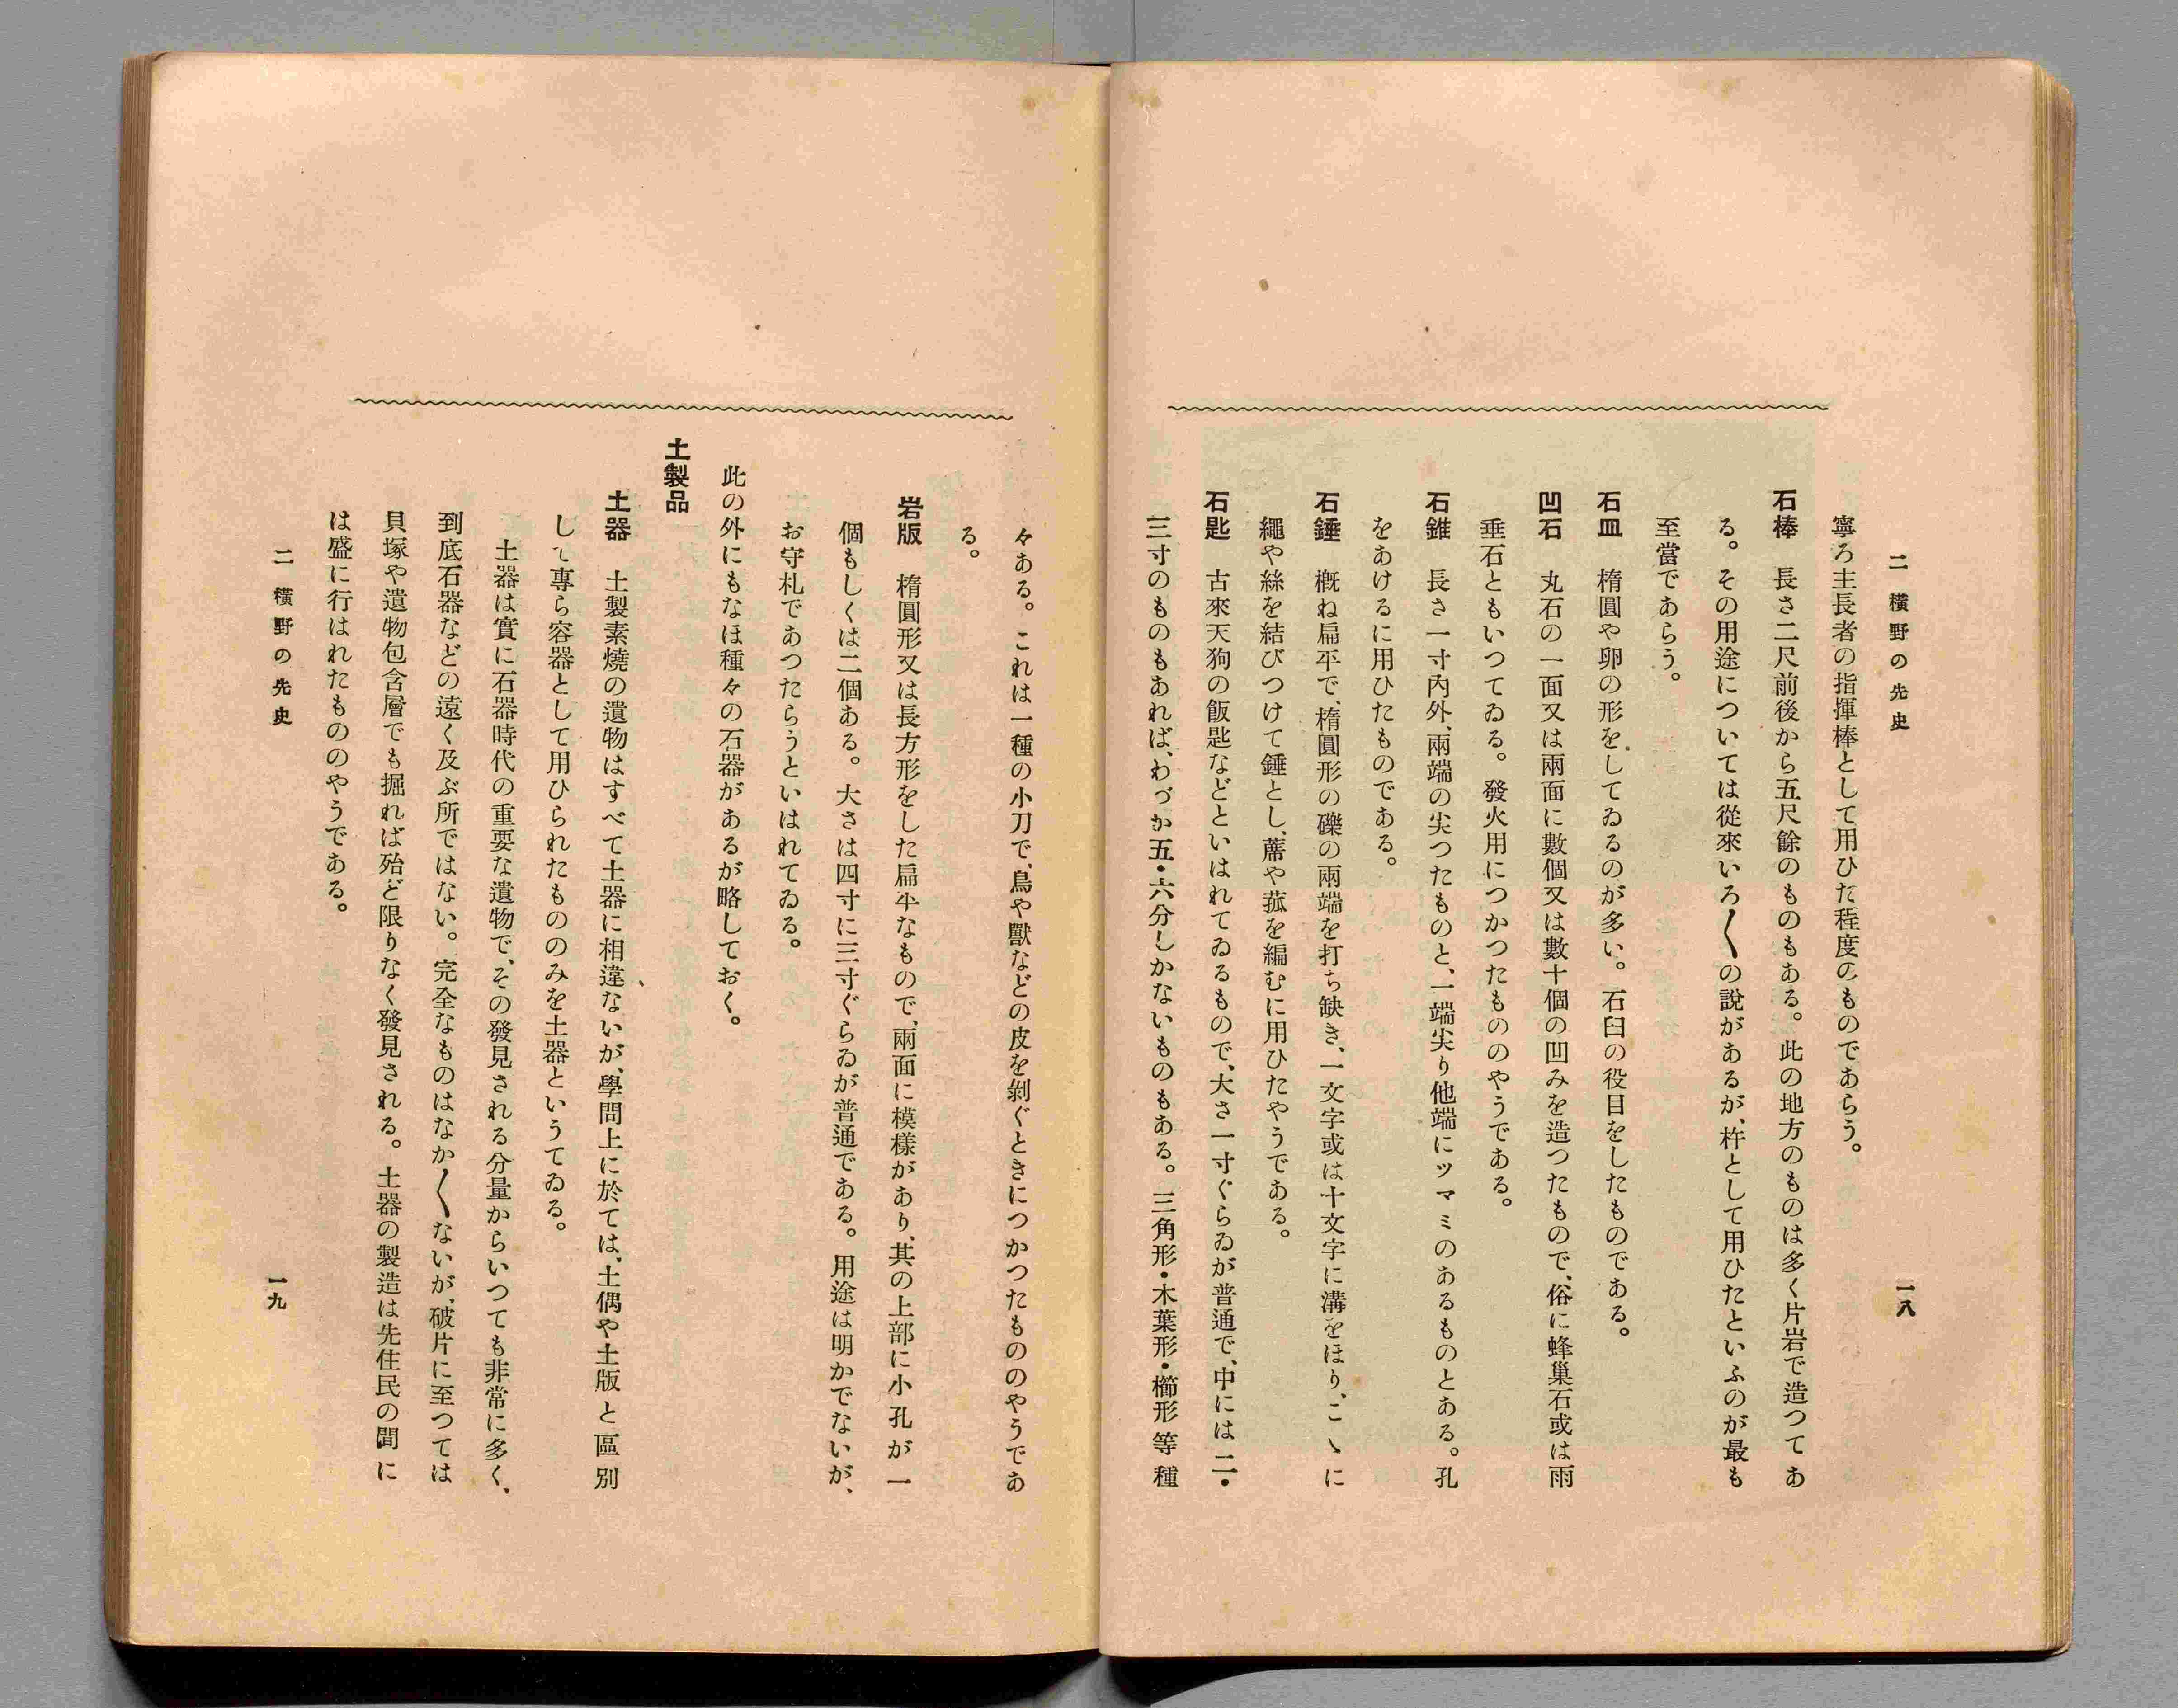 二 橫野の先史
一八
寧ろ主長者の指揮棒として用ひた程度のものであらう。
石棒 長さ二尺前後から五尺餘のものもある。此の地方のものは多く片岩で造つてあ
る。その用途については從來いろ〱の說があるが、杵として用ひたといふのが最も
至當であらう。
石皿 楕圓や卵の形をしてゐるのが多い。石臼の役目をしたものである。
凹石 丸石の一面又は兩面に數個又は數十個の凹みを造つたもので、俗に蜂巢石或は雨
垂石ともいつてゐる。發火用につかつたもののやうである。
石錐 長さ一寸內外、兩端の尖つたものと、一端尖り他端にツマミのあるものとある。孔
をあけるに用ひたものである。
石錘 槪ね扁平で、楕圓形の礫の兩端を打ち缺き、一文字或は十文字に溝をほり、こゝに
繩や絲を結びつけて錘とし、蓆や菰を編むに用ひたやうである。
石匙 古來天狗の飯匙などといはれてゐるもので、大さ一寸ぐらゐが普通で、中には二・
三寸のものもあれば、わづか五・六分しかないものもある。三角形・木葉形・櫛形等種
々ある。これは一種の小刀で、鳥や獸などの皮を剝ぐときにつかつたもののやうであ
る。
岩版 楕圓形又は長方形をした扁平なもので、兩面に模樣があり、其の上部に小孔が一
個もしくは二個ある。大さは四寸に三寸ぐらゐが普通である。用途は明かでないが、
お守札であつたらうといはれてゐる。
此の外にもなほ種々の石器があるが略しておく。
土製品
土器 土製素燒の遺物はすべて土器に相違ないが、學問上に於ては、土偶や土版と區別
して專ら容器として用ひられたもののみを土器というてゐる。
土器は實に石器時代の重要な遺物で、その發見される分量からいつても非常に多く、
到底石器などの遠く及ぶ所ではない。完全なものはなか〱ないが、破片に至つては
貝塚や遺物包含層でも掘れば殆ど限りなく發見される。土器の製造は先住民の間に
は盛に行はれたもののやうである。
二 橫野の先史
一九